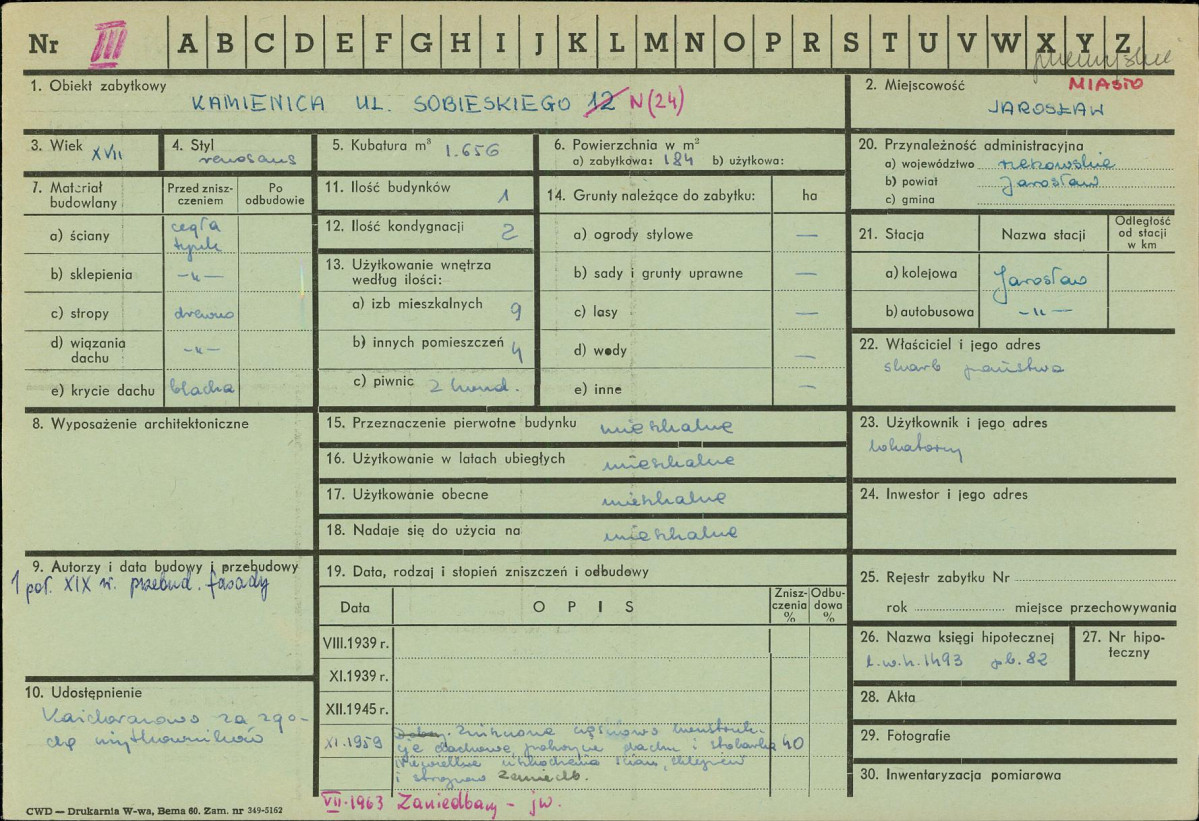 Nr III A B C D E F G H I J K L M N O P R S T U V W X Y Z
przemyskie
1. Obiekt zabytkowy
KAMIENICA UL. SOBIESKIEGO 12 N(24)
2. Miejscowość MIASTO
JAROSŁAW
3. Wiek XVII
4. Styl renesans
5. Kubatura m³ 1.656
6. Powierzchnia w m²
a) zabytkowa: 184 b) użytkowa:
20. Przynależność administracyjna
a) województwo rzeszowskie
b) powiat Jarosław
c) gmina
7. Materiał budowlany
Przed znisz-
czeniem
Po
odbudowie
a) ściany cegła
tynk
b) sklepienia —„—
c) stropy drewno
d) wiązania
dachu —„—
e) krycie dachu blacha
11. Ilość budynków 1
12. Ilość kondygnacji 2
13. Użytkowanie wnętrza
według ilości:
a) izb mieszkalnych 9
b) innych pomieszczeń 4
c) piwnic 2 kond.
14. Grunty należące do zabytku: ha
a) ogrody stylowe —
b) sady i grunty uprawne —
c) lasy —
d) wody —
e) inne —
21. Stacja Nazwa stacji
Odległość
od stacji
w km
a) kolejowa Jarosław
b) autobusowa —„—
22. Właściciel i jego adres
skarb państwa
8. Wyposażenie architektoniczne
15. Przeznaczenie pierwotne budynku mieszkalne
16. Użytkowanie w latach ubiegłych mieszkalne
17. Użytkowanie obecne mieszkalne
18. Nadaje się do użycia na mieszkalne
23. Użytkownik i jego adres
lokatorzy
24. Inwestor i jego adres
9. Autorzy i data budowy i przebudowy
1 poł. XIX w. przebud. fasady
19. Data, rodzaj i stopień zniszczeń i odbudowy
Data OPIS
Znisz-
czenia
%
Odbu-
dowa
%
VIII.1939 r.
XI.1939 r.
XII.1945 r.
XI.1959 Zniszczona częściowo konstruk-
cje dachowe, pokrycie dachu i stolarka 40
Niewielkie uszkodzenia ścian, sklepień
i stropów zaniedb.
VII.1963 Zaniedbany - jw.
25. Rejestr zabytku Nr
rok miejsce przechowywania
26. Nazwa księgi hipotecznej
l.w.h. 1493 pb. 82
27. Nr hipo-
teczny
10. Udostępnienie
Każdorazowo za zgo-
dą użytkowników
28. Akta
29. Fotografie
30. Inwentaryzacja pomiarowa
CWD — Drukarnia W-wa, Bema 60. Zam. nr 349-5162